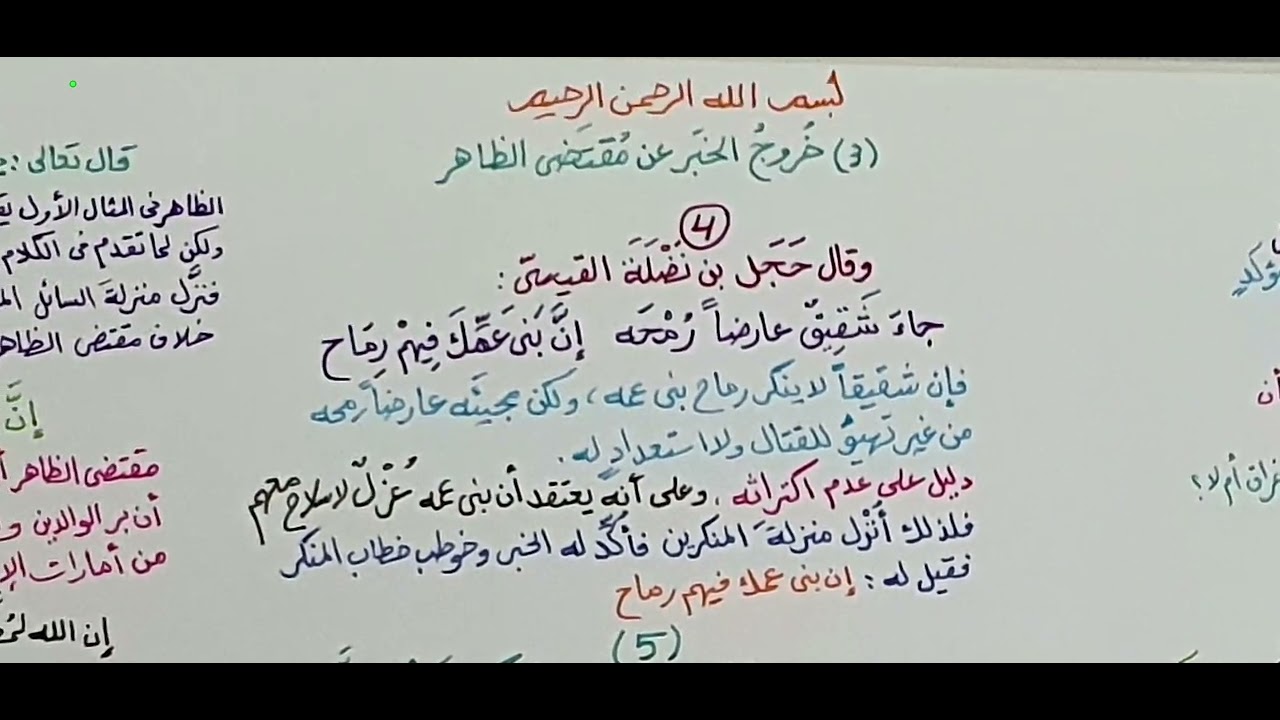 بسم الله الرحمن الرحيم
(3) خُروجُ الخبَر عن مُقتَضى الظاهر
4
وقال حَجَل بن نَضْلَةَ القيسىّ :
جاءَ شَقِيقٌ عارضاً رُمْحَه إنَّ بَنى عَمِّكَ فِيهمْ رِمَاح
فإن شقيقاً لا ينكر رماح بنى عمه ، ولكن مجيئه عارضاً رمحه
من غير تهيؤٍ للقتال ولا استعدادٍ له .
دليل على عدم اكتراثه ، وعلى أنه يعتقد أن بنى عمه عُزْلٌ لا سلاح معهم
فلذلك أُنْزل منزلةَ المنكرين فأُكِّد له الخبر وخوطب خطاب المنكر
فقيل له : إن بنى عمك فيهم رماح
(5)
قال تعالى :
الظاهر فى المثال الأول
ولكن لما تقدم فى الكلام
فنزَّل منزلةَ السائل
خلاف مقتضى الظاهر
إنَّ
مقتضى الظاهر
أن بر الوالدين
من أمارات
إن الله
أن
أم لا؟